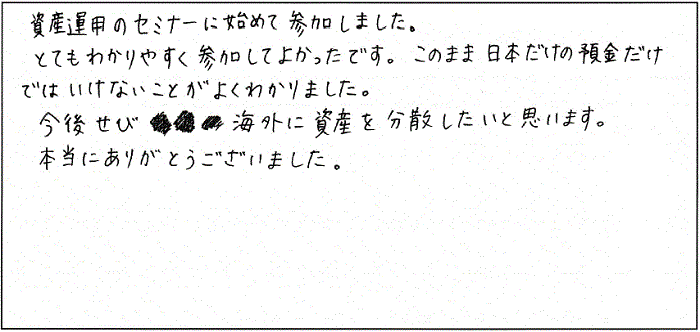 資産運用のセミナーに始めて参加しました。
とてもわかりやすく参加してよかったです。このまま日本だけの預金だけ
ではいけないことがよくわかりました。
今後せび 海外に資産を分散したいと思います。
本当にありがとうございました。